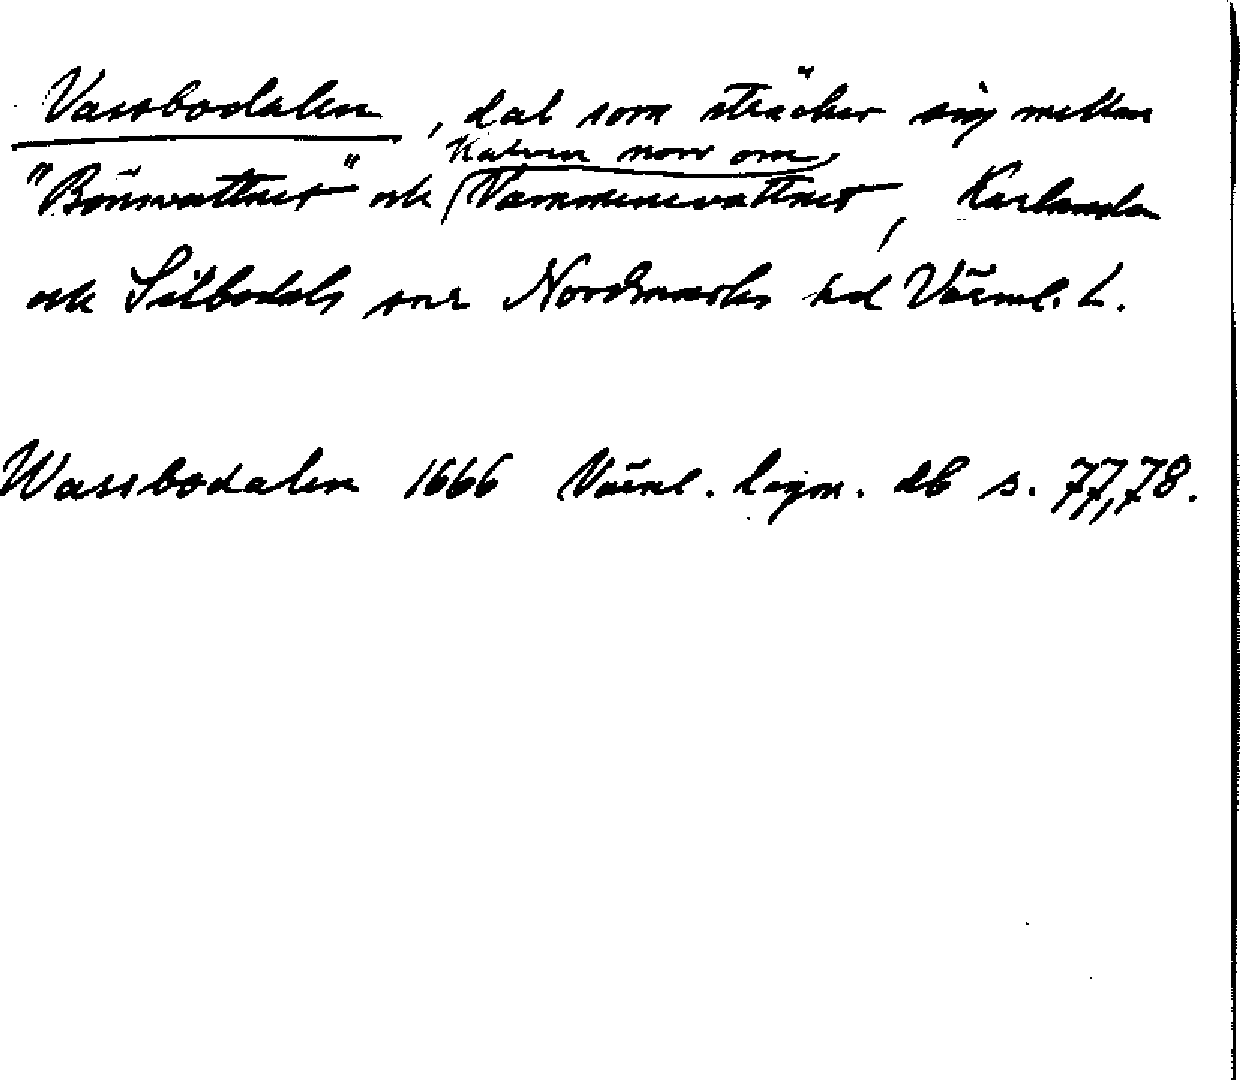 Vassbodalen, dal som sträcker sig mellan
Kalven norr om
"Bönsvattnet" ock Vammervattnet, Karlanda
ock Silbodals snr Nordmarks hd Värml. L.
Wassbodalen 1666 Värml. lagm. db s. 77,78.